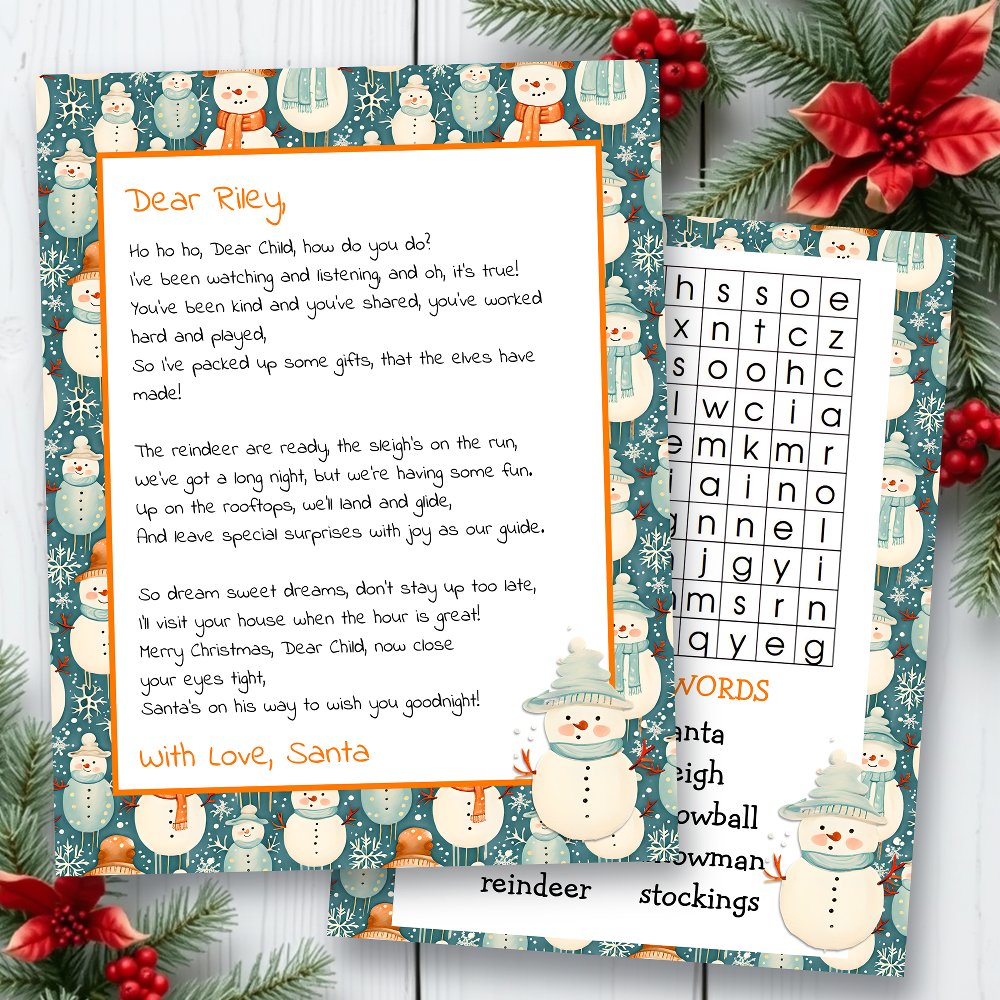 Dear Riley,
Ho ho ho, Dear Child, how do you do?
I've been watching and listening, and oh, it's true!
You've been kind and you've shared, you've worked
hard and played,
So I've packed up some gifts, that the elves have
made!
The reindeer are ready, the sleigh's on the run,
We've got a long night, but we're having some fun.
Up on the rooftops, we'll land and glide,
And leave special surprises with joy as our guide.
So dream sweet dreams, don't stay up too late,
I'll visit your house when the hour is great!
Merry Christmas, Dear Child, now close
your eyes tight,
Santa's on his way to wish you goodnight!
With Love, Santa
h s s o e
x n t c z
s o o h c
l w c i a
e m k m r
i a i n o
g n n e l
j g y i
m s r n
q y e g
WORDS
anta
eigh
owball
owman
reindeer stockings